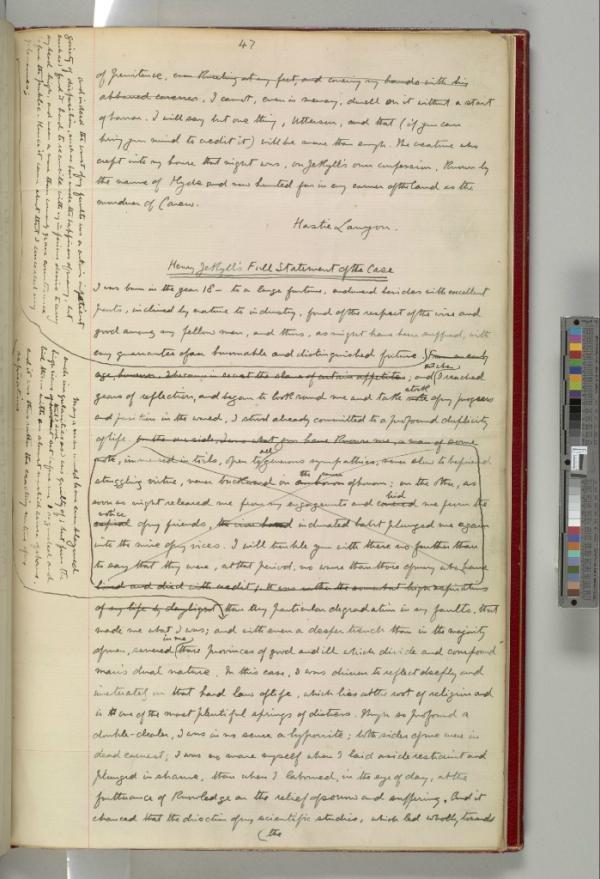 47
of penitence, even kneeling at my feet, and covering my hands with his
abhorred caresses, I cannot, even in memory, dwell on it without a start
of horror. I will say but one thing, Utterson, and that (if you can
bring your mind to credit it) will be more than enough. The creature who
crept into my house that night was, on Jekyll's own confession, known by
the name of Hyde and now hunted for in any corner of the land as the
murderer of Carew.
Hastie Lanyon.
Henry Jekyll's Full Statement of the Case
I was born in the year 18— to a large fortune, endued besides with excellent
parts, inclined by nature to industry, fond of the respect of the wise and
good among my fellow men, and thus, as might have been supposed, with
every guarantee of an honourable and distinguished future. From an early
when
age, however, I became in secret the slave of certain appetites; and I reached
stock
years of reflection, and began to look round me and take note of my progress
and position in the world, I stood already committed to a profound duplicity
of life. on the one side, I was what you have known me, a man of some
all
note, immersed in toils, open to generous sympathies, never slow to befriend
the
struggling virtue, never backward in an honour; on the other, as
hid
soon as night released me from my engagements and me from the
notice
of my friends, the iron hand indurated habit plunged me again
into the mire of my vices. I will trouble you with these no further than
to say that they were, at that period, no worse than those of many who have
lived and died with credit. It was rather the somewhat high aspirations
of my life by daylight than any particular degradation in my faults, that
made me what I was; and with even a deeper trench than in the majority
in me
of men, severed those provinces of good and ill which divide and compound
man's dual nature. In this case, I was driven to reflect deeply and
inveterately on that hard law of life, which lies at the root of religion and
is one of the most plentiful springs of distress. Though so profound a
double-dealer, I was in no sense a hypocrite; both sides of me were in
dead earnest; I was no more myself when I laid aside restraint and
plunged in shame, than when I laboured, in the eye of day, at the
furtherance of knowledge or the relief of sorrow and suffering. And it
chanced that the direction of my scientific studies, which led wholly towards
the
and indeed the worst of my faults was a certain impatient
gaiety of disposition, such as has made the happiness of many, but
such as I found it hard to reconcile with my imperious desire to carry
my head high, and wear a more than commonly grave countenance
before the public. Hence it came about that I concealed my
pleasures;
Many a man would have even blazoned
such irregularities as I was guilty of; but from the
high views that I had set before me, I regarded and
hid them with an almost morbid sense of shame.
and it was thus rather the exacting nature of my
aspirations